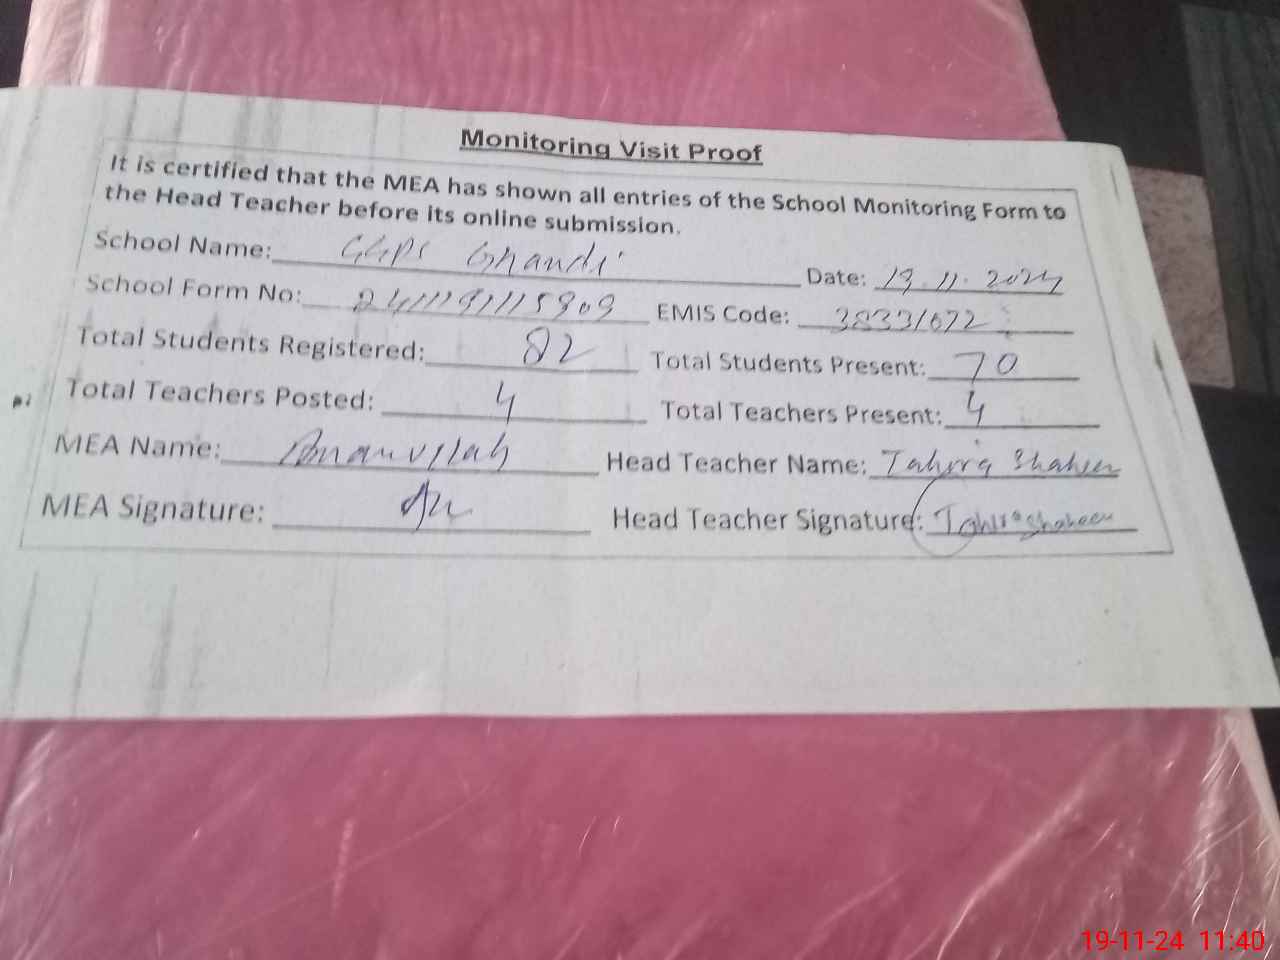 Monitoring Visit Proof
It is certified that the MEA has shown all entries of the School Monitoring Form to
the Head Teacher before its online submission.
School Name: GGPS Ghandi Date: 19.11.2024
School Form No: 241119115909 EMIS Code: 38331672
Total Students Registered: 82 Total Students Present: 70
Total Teachers Posted: 4 Total Teachers Present: 4
MEA Name: Amanullah Head Teacher Name: Tahira Shaheen
MEA Signature: Head Teacher Signature: Tahira Shaheen
19-11-24 11:40